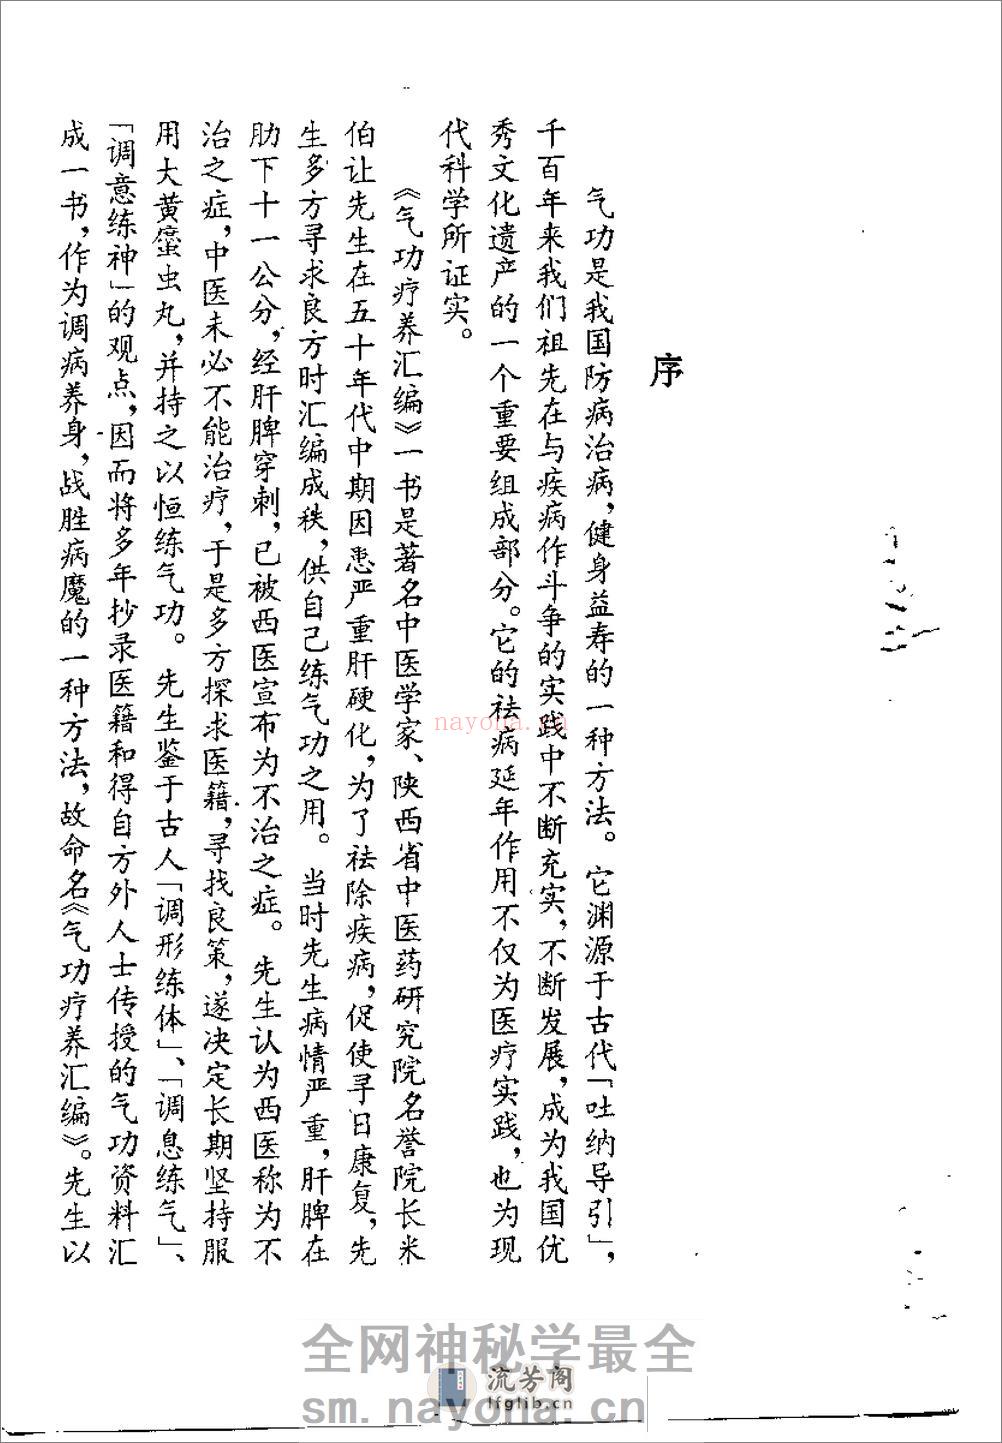 序
气功是我国防病治病，健身益寿的一种方法。它渊源于古代「吐纳导引」，
千百年来我们祖先在与疾病作斗争的实践中不断充实，不断发展，成为我国优
秀文化遗产的一个重要组成部分。它的祛病延年作用不仅为医疗实践，也为现
代科学所证实。
《气功疗养汇编》一书是著名中医学家、陕西省中医药研究院名誉院长米
伯让先生在五十年代中期因患严重肝硬化，为了祛除疾病，促使寻日康复，先
生多方寻求良方时汇编成秩，供自己练气功之用。当时先生病情严重，肝脾在
肋下十一公分，经肝脾穿刺，已被西医宣布为不治之症。先生认为西医称为不
治之症，中医未必不能治疗，于是多方探求医籍，寻找良策，遂决定长期坚持服
用大黄䗪虫丸，并持之以恒练气功。先生鉴于古人「调形练体」、「调息练气」、
「调意练神」的观点，因而将多年抄录医籍和得自方外人士传授的气功资料汇
成一书，作为调病养身，战胜病魔的一种方法，故命名《气功疗养汇编》。先生以
nayona.cn
全网神秘学最全
流芳阁
lfglib.cn
sm.nayona.cn